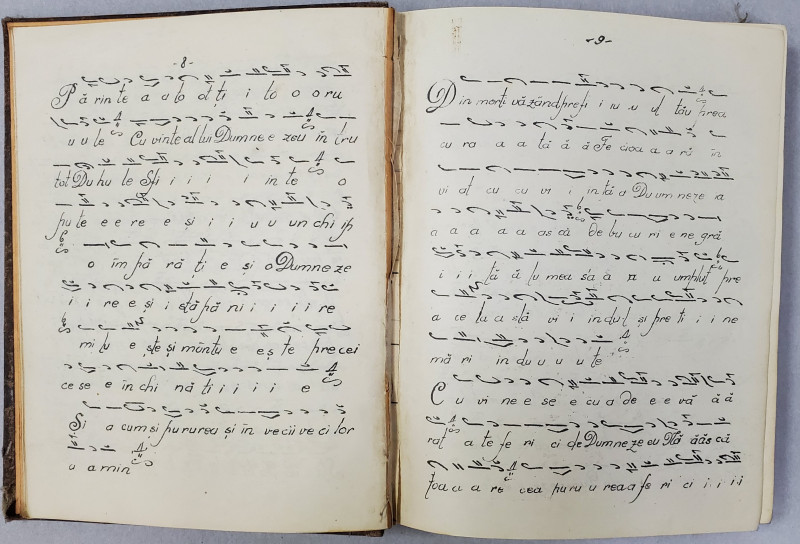 -8-
Pă rin te a a to ot ți i to o o ru
u u le Cu vinte al lui Dumne e zeu în tru
tot Du hu le Sfi i i i i in te o
pu te e e re e și i i u u un chi ih
o îm pă ră ți e și o Dumne ze
i i re e și i stă pă ni i i i i re
mi lu e ște și mântu e eș te pre cei
ce se e în chi nă ti i i i i e
Și a cum si pu rurea și în vecii ve ci lor
u a min
-9-
Din morți văzând pre fi i iu u ul tău prea
cu ra a a tă ă ă Fe cioa a a ră în
vi at cu cu vi i in tă a Du um ne ze ia
a a a a a as că de bu cu ri e ne gră
i i i tă ă lu mea sa a a u umplut pre
a ce lu a stă vi i in dul și pre ti i i ne
mă ri in du u u u te
Cu vi ne e se e cu a de e e vă ă ă
rat a te fe ri ci de Dumne ze eu Nă ă ăs că
toa a a re cea pu ru u rea a fe ri ci i i i i